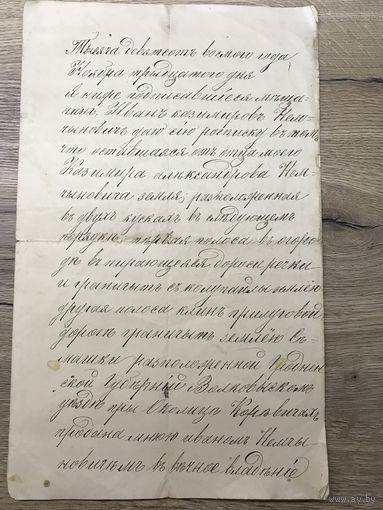 Тысяча девятсотъ восмого года,
Ноября тридцатого дня
я ниже подписавшіеся мѣща-
нинъ. Иванъ казимировъ Нем-
чыновичъ даю сію росписку въ томъ
что оставшаяся отъ отца моего
Казимира александрова Нем-
чыновича земля, расположенная
въ двухъ кускахъ въ слѣдующемъ
порядки, первая полоса въ огоро-
дѣ въ пирающаяся дороси рѣчки
и граничытъ съ землёю
другая полоса клинъ при луговой
дороги граничытъ землёю Съ-
машки расположенной Гроднен-
ской Губерній Волковыскомъ
уездѣ при Околицѣ Коревичахъ
продана мною иваномъ Немчы-
новичемъ въ вѣчное владѣніе
ay.by